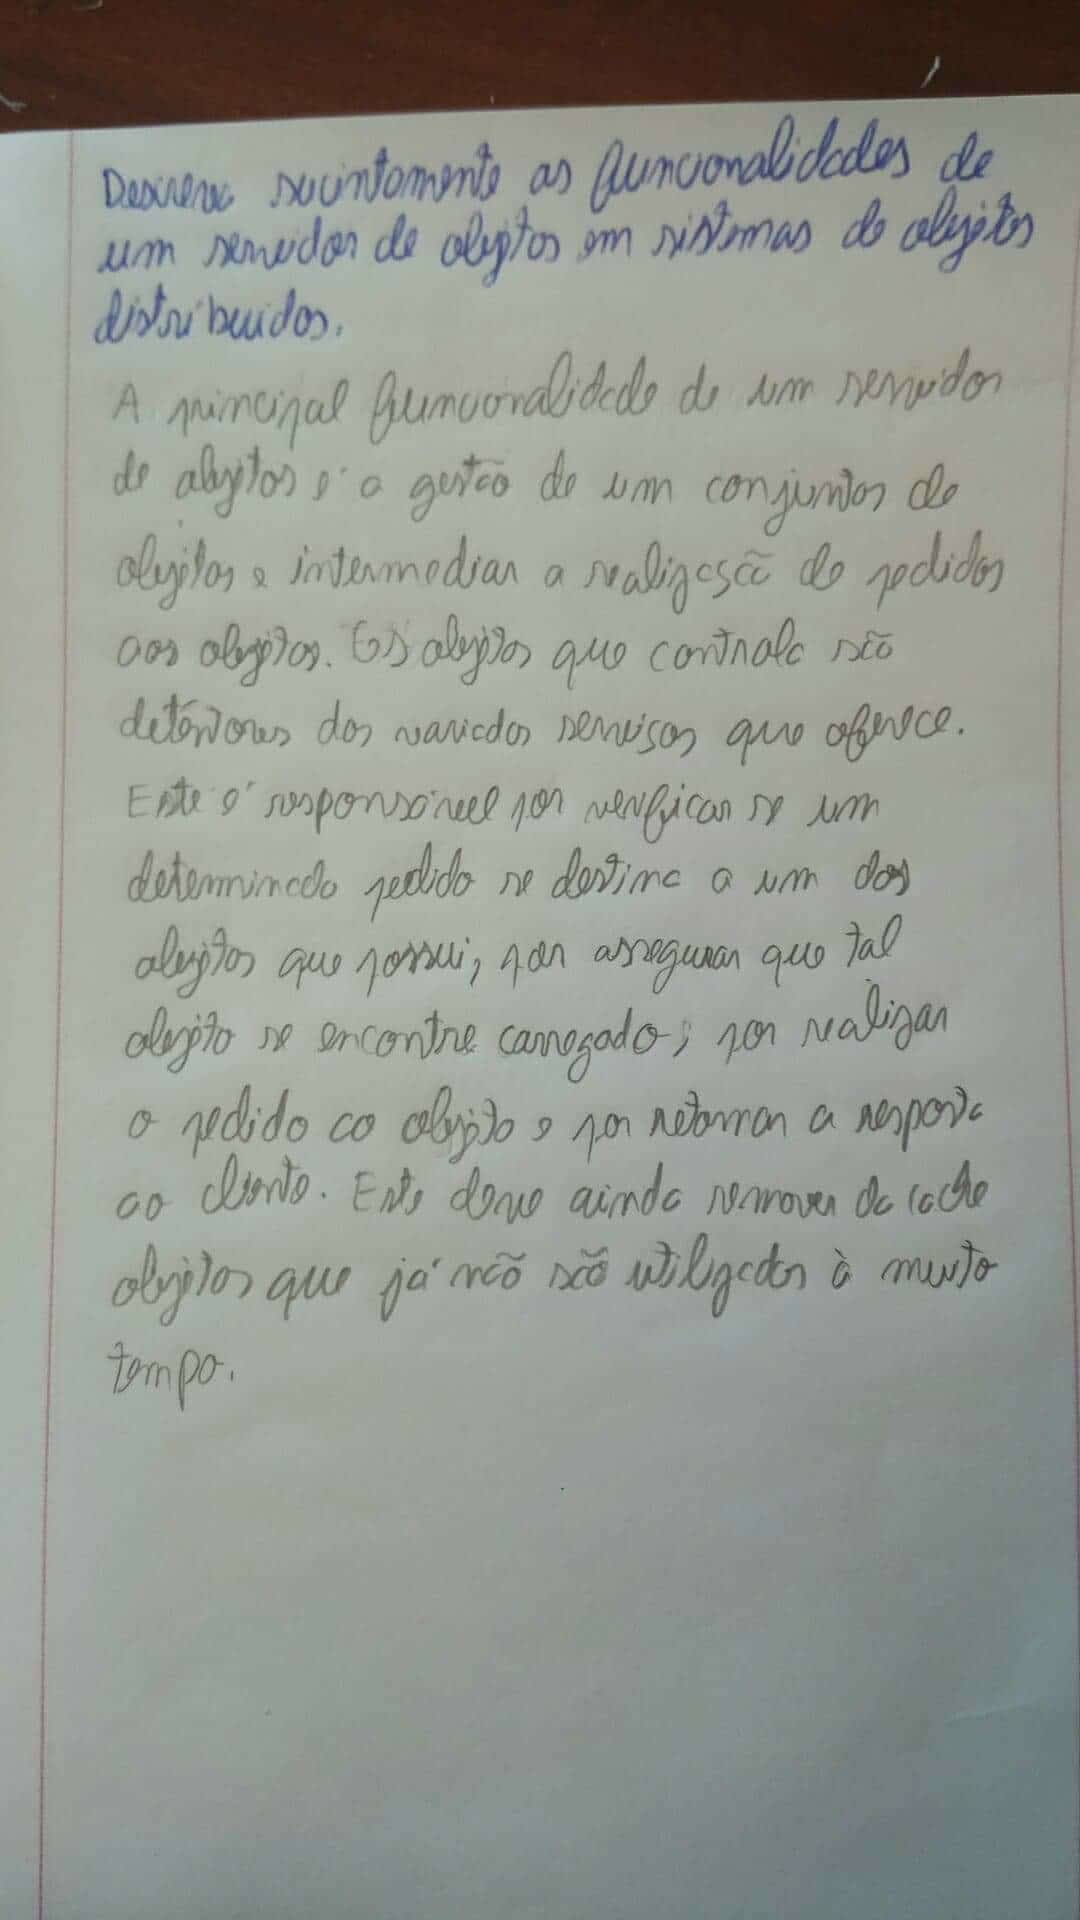 Descreva sucintamente as funcionalidades de
um servidor de objetos em sistemas de objetos
distribuidos.
A principal funcionalidade de um servidor
de objetos é a gestão de um conjuntos de
objetos e intermediar a realização de pedidos
aos objetos. Os objetos que controla são
detentores dos variados serviços que oferece.
Este é responsável por verificar se um
determinado pedido se destina a um dos
objetos que possui, por assegurar que tal
objeto se encontre carregado, por realizar
o pedido ao objeto e por retornar a resposta
ao cliente. Este deve ainda remover da cache
objetos que já não são utilizados à muito
tempo.